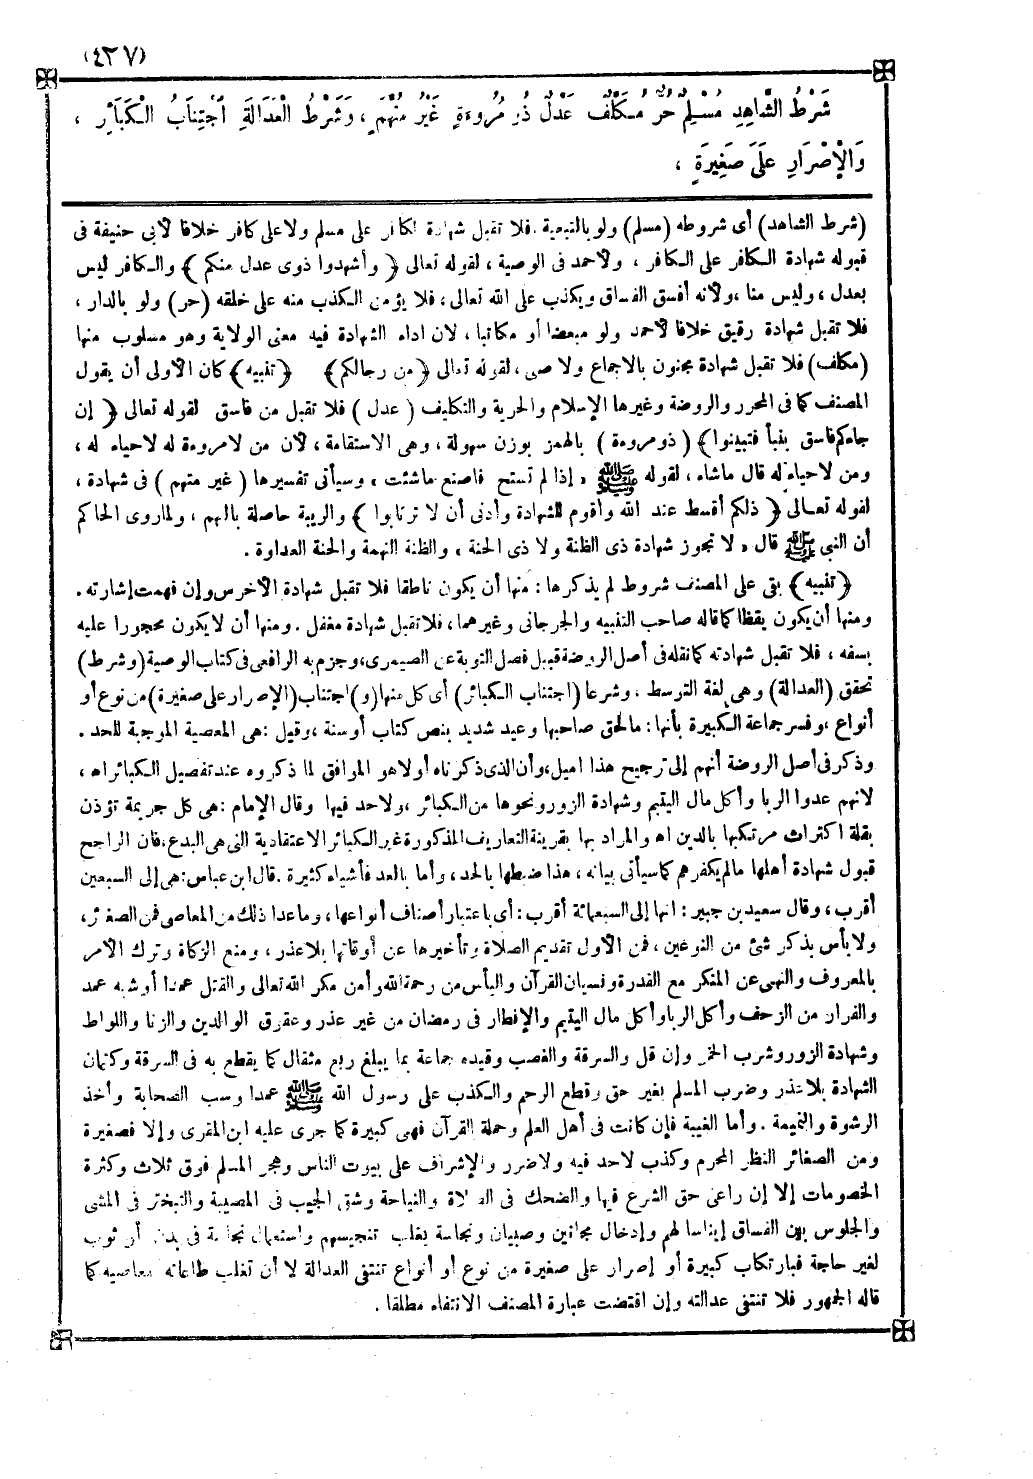 (٤٢٧)
شَرْطُ الشَّاهِدِ مُسْلِمٌ حُرٌّ مُكَلَّفٌ عَدْلٌ ذُو مُرُوءَةٍ غَيْرُ مُتَّهَمٍ ، وَشَرْطُ الْعَدَالَةِ اجْتِنَابُ الْكَبَائِرِ ،
وَالْإِصْرَارِ عَلَى صَغِيرَةٍ ،
(شرط الشاهد) أى شروطه (مسلم) ولو بالتبعية . فلا تقبل شهادة لكافر على مسلم ولا على كافر خلافا لأبى حنيفة فى
قبوله شهادة الكافر على الكافر ، ولاحمد فى الوصية ، لقوله تعالى ﴿ وأشهدوا ذوى عدل منكم ﴾ والكافر ليس
بعدل ، وليس منا ، ولأنه أفسق الفساق ويكذب على الله تعالى ، فلا يؤمن الكذب منه على خلقه (حر) ولو بالدار ،
فلا تقبل شهادة رقيق خلافا لأحمد ولو مبعضا أو مكاتبا ، لان اداء الشهادة فيه معنى الولاية وهو مسلوب منها
(مكلف) فلا تقبل شهادة مجنون بالاجماع ولا صبى ، لقوله تعالى ﴿ من رجالكم ﴾ ﴿ تنبيه ﴾ كان الأولى أن يقول
المصنف كما فى المحرر والروضة وغيرها الإسلام والحرية والتكليف (عدل) فلا تقبل من فاسق لقوله تعالى ﴿ إن
جاءكم فاسق بنبأ فتبينوا ﴾ (ذو مروءة) بالهمز بوزن سهولة ، وهى الاستقامة ، لأن من لا مروءة له لا حياء له ،
ومن لا حياء له قال ماشاء ، لقوله ﷺ « إذا لم تستح فاصنع ماشئت » وسيأتى تفسيرها (غير متهم) فى شهادة ،
لقوله تعالى ﴿ ذلكم أقسط عند الله وأقوم للشهادة وأدنى أن لا ترتابوا ﴾ والريبة حاصلة بالمتهم ، ولما روى الحاكم
أن النبى ﷺ قال « لا تجوز شهادة ذى الظنة ولا ذى الحنة » والظنة التهمة والحنة العداوة .
﴿ تنبيه ﴾ بقى على المصنف شروط لم يذكرها : منها أن يكون ناطقا فلا تقبل شهادة الأخرس وإن فهمت إشارته .
ومنها أن يكون يقظا كما قاله صاحب التنبيه والجرجانى وغيرهما ، فلا تقبل شهادة مغفل . ومنها أن لا يكون محجورا عليه
بسفه ، فلا تقبل شهادته كما نقله فى أصل الروضة قبيل فصل التوبة عن الصيمرى ، وجزم به الرافعى فى كتاب الوصية (وشرط)
تحقق (العدالة) وهى لغة التوسط ، وشرعا (اجتناب الكبائر) أى كل منها (و) اجتناب (الإصرار على صغيرة) من نوع أو
أنواع ، وفسر جماعة الكبيرة بأنها : مالحق صاحبها وعيد شديد بنص كتاب أو سنة ، وقيل : هى المعصية الموجبة للحد .
وذكر فى أصل الروضة أنهم إلى ترجيح هذا اميل ، وأن الذى ذكرناه أولا هو الموافق لما ذكروه عند تفصيل الكبائر اه ،
لانهم عدوا الربا وأكل مال اليتيم وشهادة الزور ونحوها من الكبائر ، ولاحد فيها وقال الإمام : هى كل جريمة تؤذن
بقلة اكتراث مرتكبها بالدين اه والمراد بها بقرينة التعاريف المذكورة غير الكبائر الاعتقادية التى هى البدع ، فان الراجح
قبول شهادة أهلها مالم يكفرهم كما سيأتى بيانه ، هذا ضبطها بالحد ، وأما بالعد فأشياء كثيرة . قال ابن عباس : هى إلى السبعين
أقرب ، وقال سعيد بن جبير : انها إلى السبعمائة أقرب : أى باعتبار أصناف أنواعها ، وماعدا ذلك من المعاصى فمن الصغائر ،
ولا بأس بذكر شئ من النوعين ، فمن الأول تقديم الصلاة وتأخيرها عن أوقاتها بلا عذر ، ومنع الزكاة وترك الأمر
بالمعروف والنهى عن المنكر مع القدرة ونسيان القرآن واليأس من رحمة الله وأمن مكر الله تعالى والقتل عمدا أو شبه عمد
والفرار من الزحف وأكل الربا وأكل مال اليتيم والإفطار فى رمضان من غير عذر وعقوق الوالدين والزنا واللواط
وشهادة الزور وشرب الخمر وإن قل والسرقة والغصب وقيده جماعة بما يبلغ ربع مثقال كما يقطع به فى السرقة وكتمان
الشهادة بلا عذر وضرب المسلم بغير حق وقطع الرحم والكذب على رسول الله ﷺ عمدا وسب الصحابة وأخذ
الرشوة والنميمة . وأما الغيبة فإن كانت فى أهل العلم وحملة القرآن فهى كبيرة كما جرى عليه ابن المقرى وإلا فصغيرة
ومن الصغائر النظر المحرم وكذب لاحد فيه ولا ضرر والإشراف على بيوت الناس وهجر المسلم فوق ثلاث وكثرة
الخصومات إلا إن راعى حق الشرع فيها والضحك فى الصلاة والنياحة وشق الجيب فى المصيبة والتبختر فى المشى
والجلوس بين الفساق إيناسا لهم وإدخال مجانين وصبيان ونجاسة يغلب تنجيسهم واستعمال نجاسة فى بدن أو ثوب
لغير حاجة فبارتكاب كبيرة أو إصرار على صغيرة من نوع أو أنواع تنتفى العدالة لا أن تغلب طاعاته معاصيه كما
قاله الجمهور فلا تنتفى عدالته وإن اقتضت عبارة المصنف الانتفاء مطلقا .